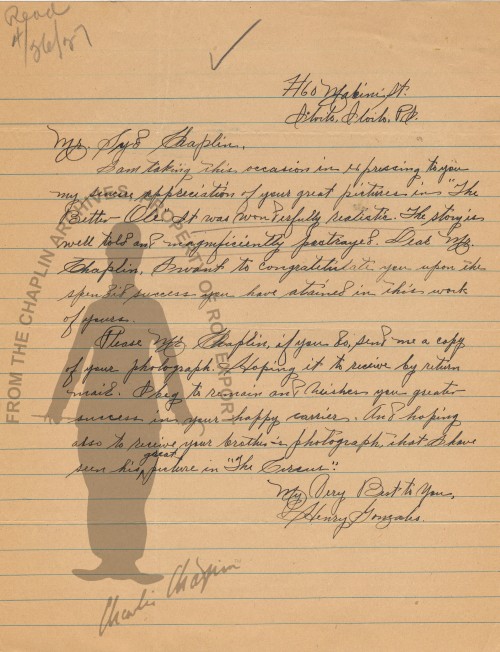 Read
4/26/27
#60 Mabini St.
Iloilo, Iloilo, P.I.
Mr. Syd Chaplin,
I am taking this occasion in expressing to you
my sincere appreciation of your great pictures in "The
Better- Ole. It was wonderfully realistic. The story is
well told and magnificiently portrayed. Dear Mr.
Chaplin, I want to congratulate you upon the
spendid success you have attained in this work
of yours.
Please Mr. Chaplin, if you do, send me a copy
of your photograph. Hoping it to receive by return
mail. I beg to remain and wishes you greater
success in your happy carrier. And hoping
also to receive your brother's photograph, that I have
seen his great picture in "The Circus".
My Very Best to You,
Henry Gonzales.
Charlie Chaplin
FROM THE CHAPLIN ARCHIVES PROPERTY OF ROY EXPORT